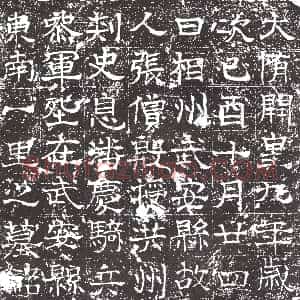 大隋開皇九年歲
次己酉十月廿四
日相州武安縣故
人張僧殷授共州
刾史息潘慶騎兵
參軍塋在武安縣
東南一里之墓銘